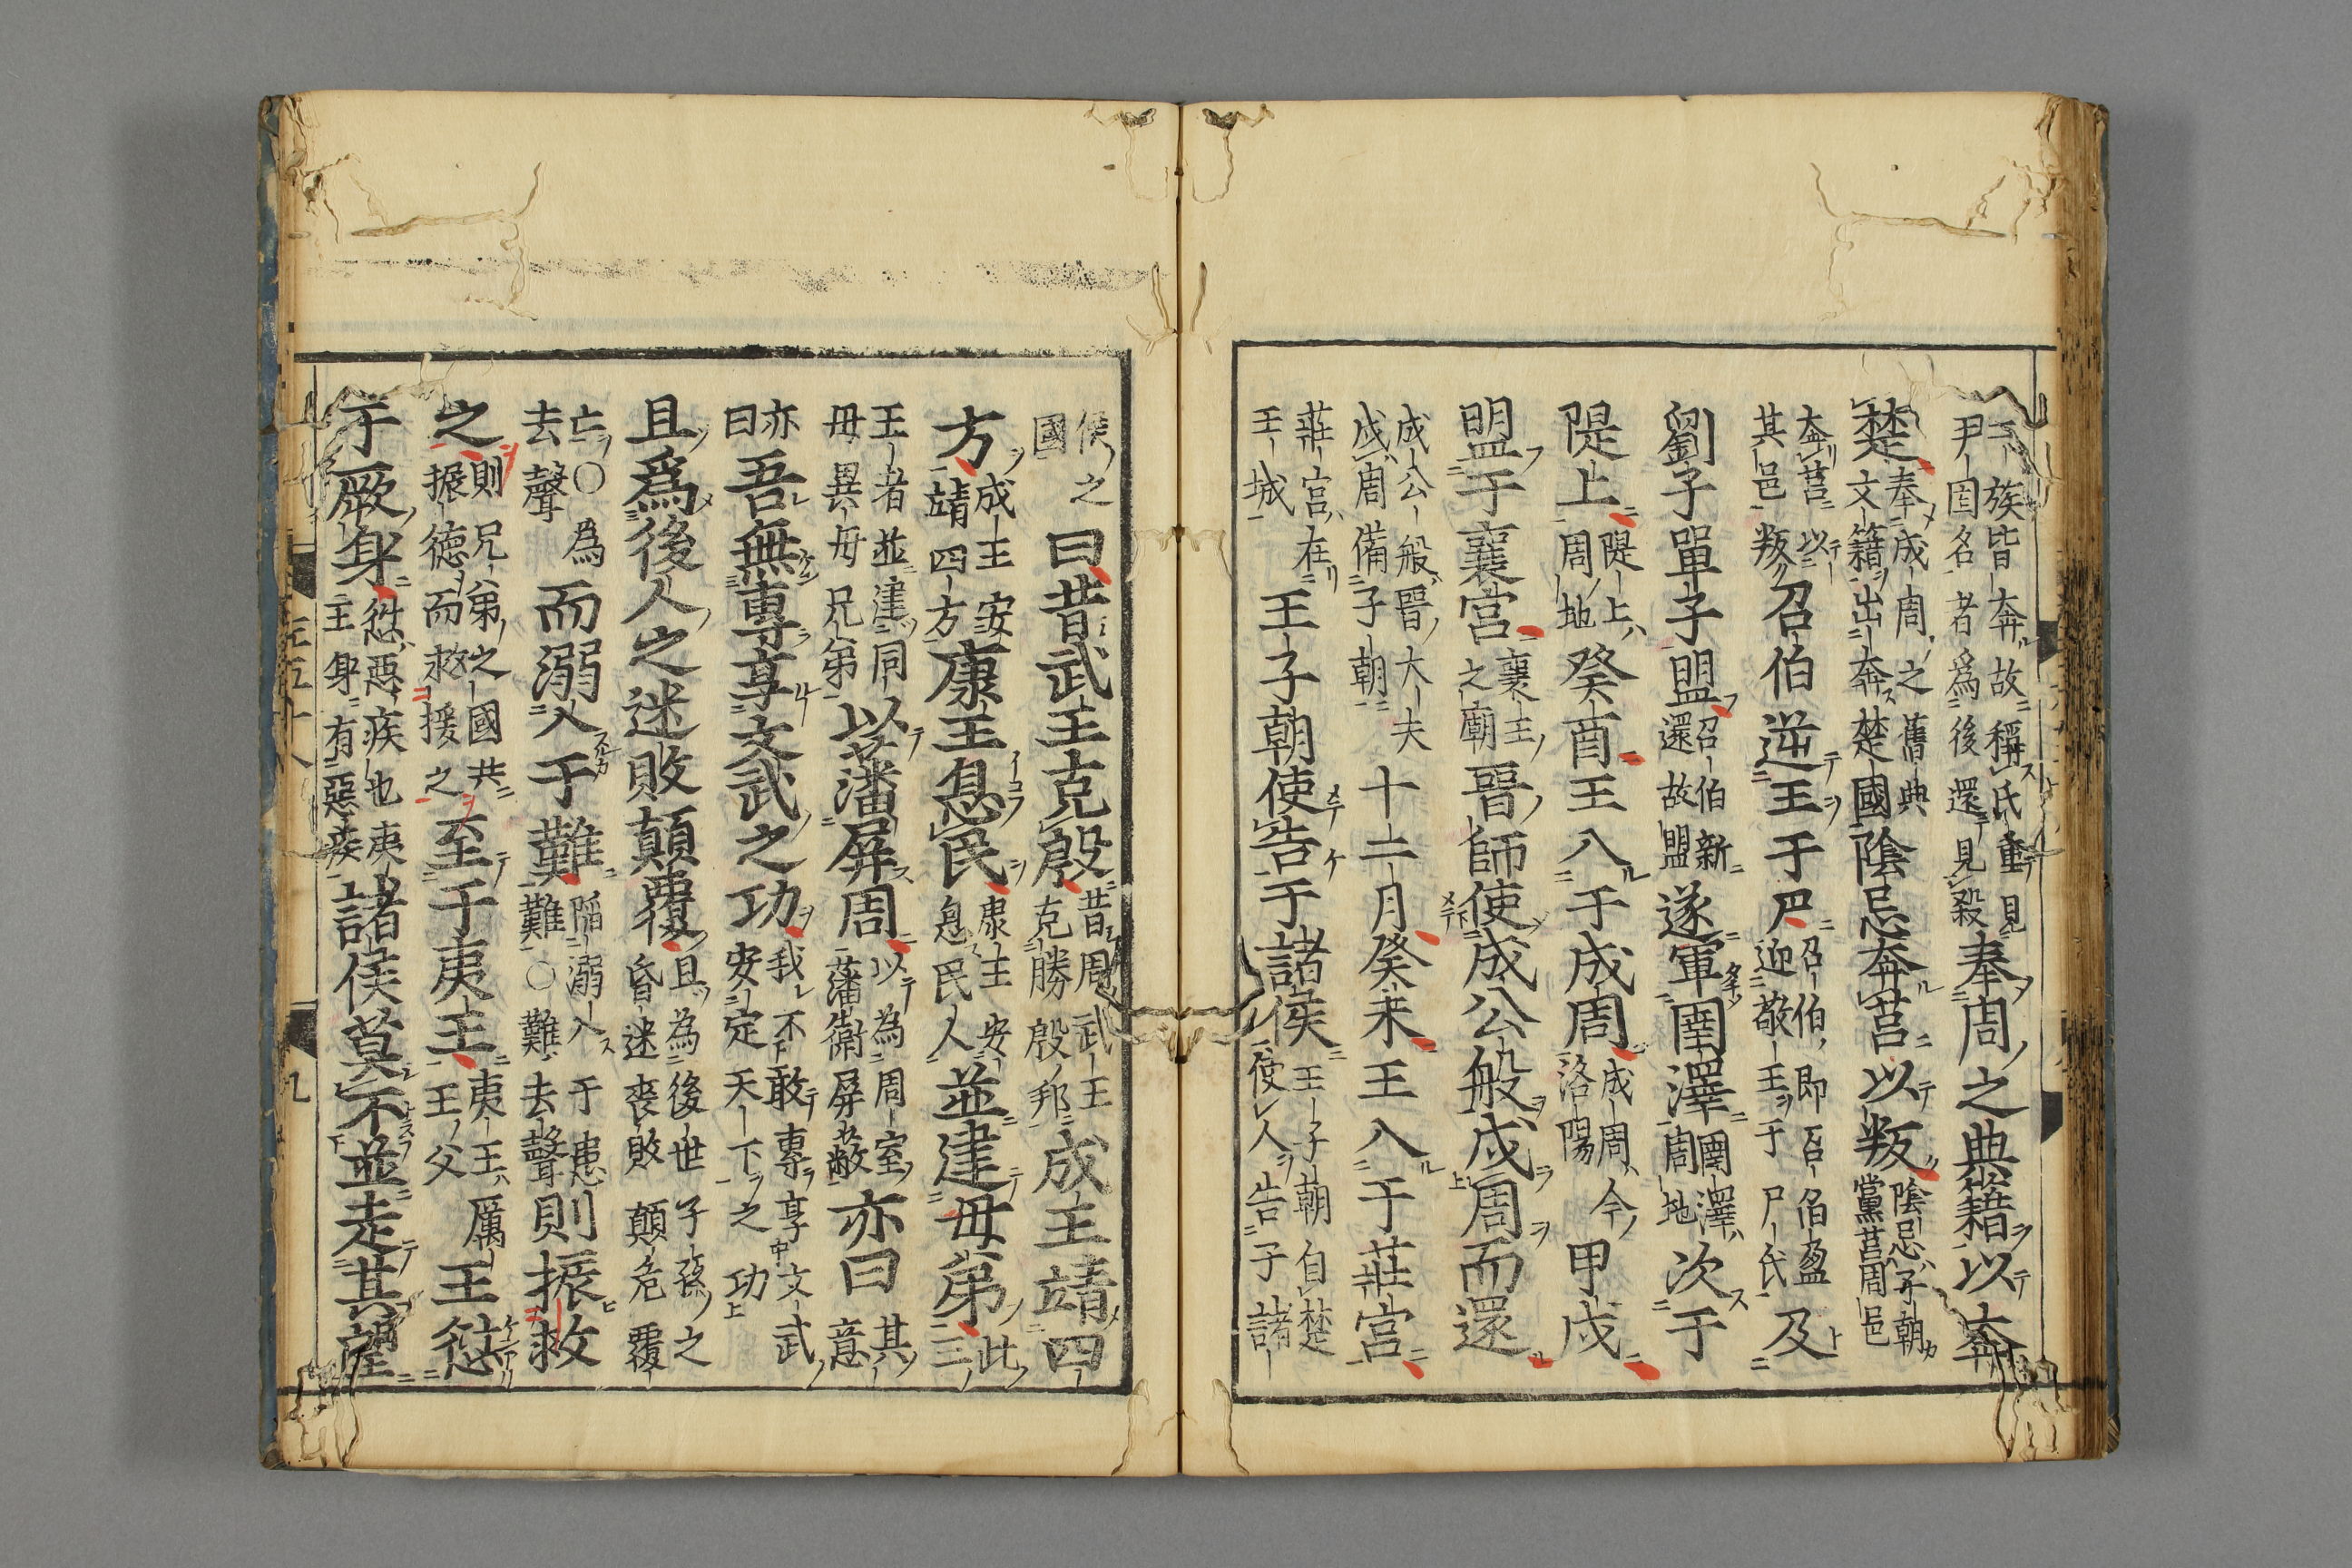 二族皆奔故稱氏重見尹固名者爲後還見殺奉周之典籍以奔
楚奉成周之舊典文籍出奔楚國陰忌奔莒以叛陰忌子朝黨莒周邑
奔莒以其邑叛召伯逆王于尸召伯即召伯盈迎敬王于尸氏及
劉子單子盟召伯新還故盟遂軍圉澤圉澤周地次于
隄上隄上周地癸酉王入于成周成周今洛陽甲戌
盟于襄宮襄王之廟晉師使成公般戍周而還
成公般晉大夫戍周備子朝十二月癸未王入于莊宮
莊宮在王城王子朝使告于諸侯王子朝自楚使人告于諸
侯之國曰昔武王克殷昔周武王克勝殷邦成王靖四
方成王安靖四方康王息民康王安息民人並建母弟此三
王者並建同母異母兄弟以藩屏周以為周室藩衛屏蔽亦曰其意
亦曰吾無專享文武之功我不敢專享文武安定天下之功
且爲後人之迷敗顛覆且為後世子孫之昏迷喪敗顛危覆
亡○為去聲而溺入于難陷溺入于患難○難去聲則振救
之則兄弟之國共振德而救援之至于夷王夷王厲王父王愆
于厥身愆惡疾也夷王身有惡疾諸侯莫不並走其望